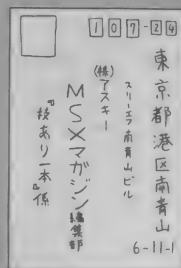 107-24
東京都港区南青山
6-11-1
スリーエフ南青山ビル
(株)アスキー
MSXマガジン編集部
『技あり一本』係